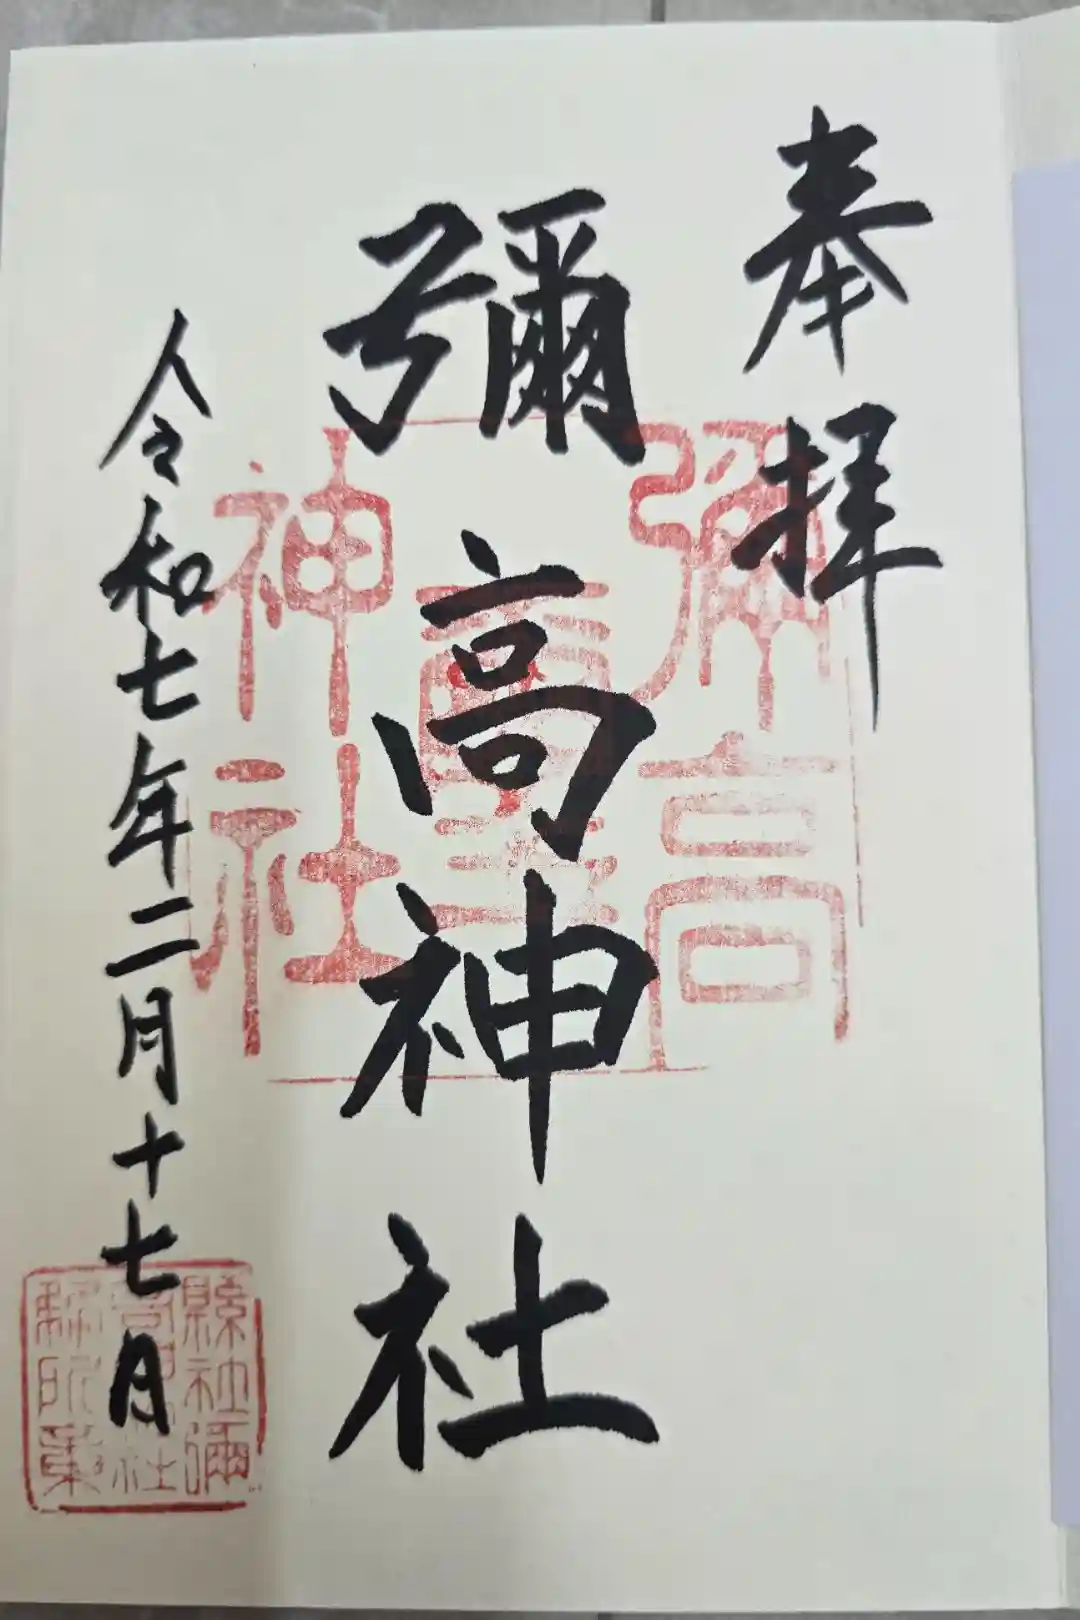 奉拝
彌高神社
彌高
神社
令和七年二月十七日
縣社彌
高神社